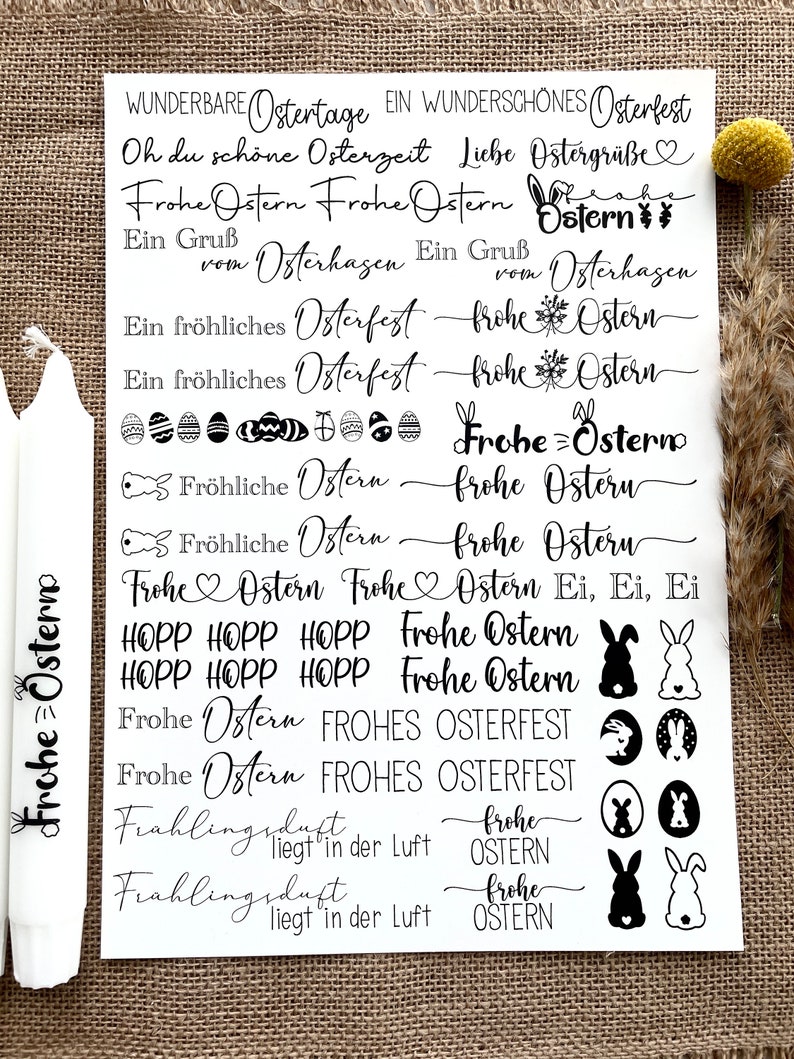 WUNDERBARE Ostertage EIN WUNDERSCHÖNES Osterfest
Oh du schöne Osterzeit Liebe Ostergrüße
Frohe Ostern Frohe Ostern frohe Ostern
Ein Gruß vom Osterhasen Ein Gruß vom Osterhasen
Ein fröhliches Osterfest frohe Ostern
Ein fröhliches Osterfest frohe Ostern
Frohe Ostern
Fröhliche Ostern frohe Ostern
Fröhliche Ostern frohe Ostern
Frohe Ostern Frohe Ostern Ei, Ei, Ei
HOPP HOPP HOPP Frohe Ostern
HOPP HOPP HOPP Frohe Ostern
Frohe Ostern FROHES OSTERFEST
Frohe Ostern FROHES OSTERFEST
Frühlingsduft liegt in der Luft frohe OSTERN
Frühlingsduft liegt in der Luft frohe OSTERN
Frohe Ostern